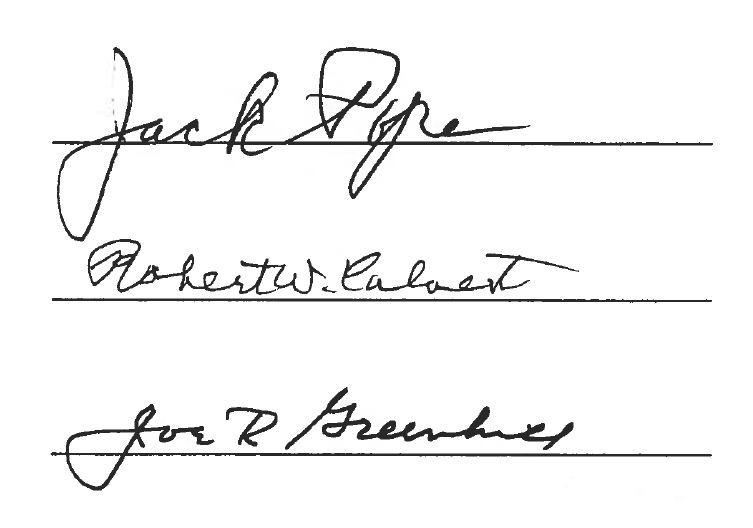 Jack Pope
Robert W. Calvert
Joe R Greenhill